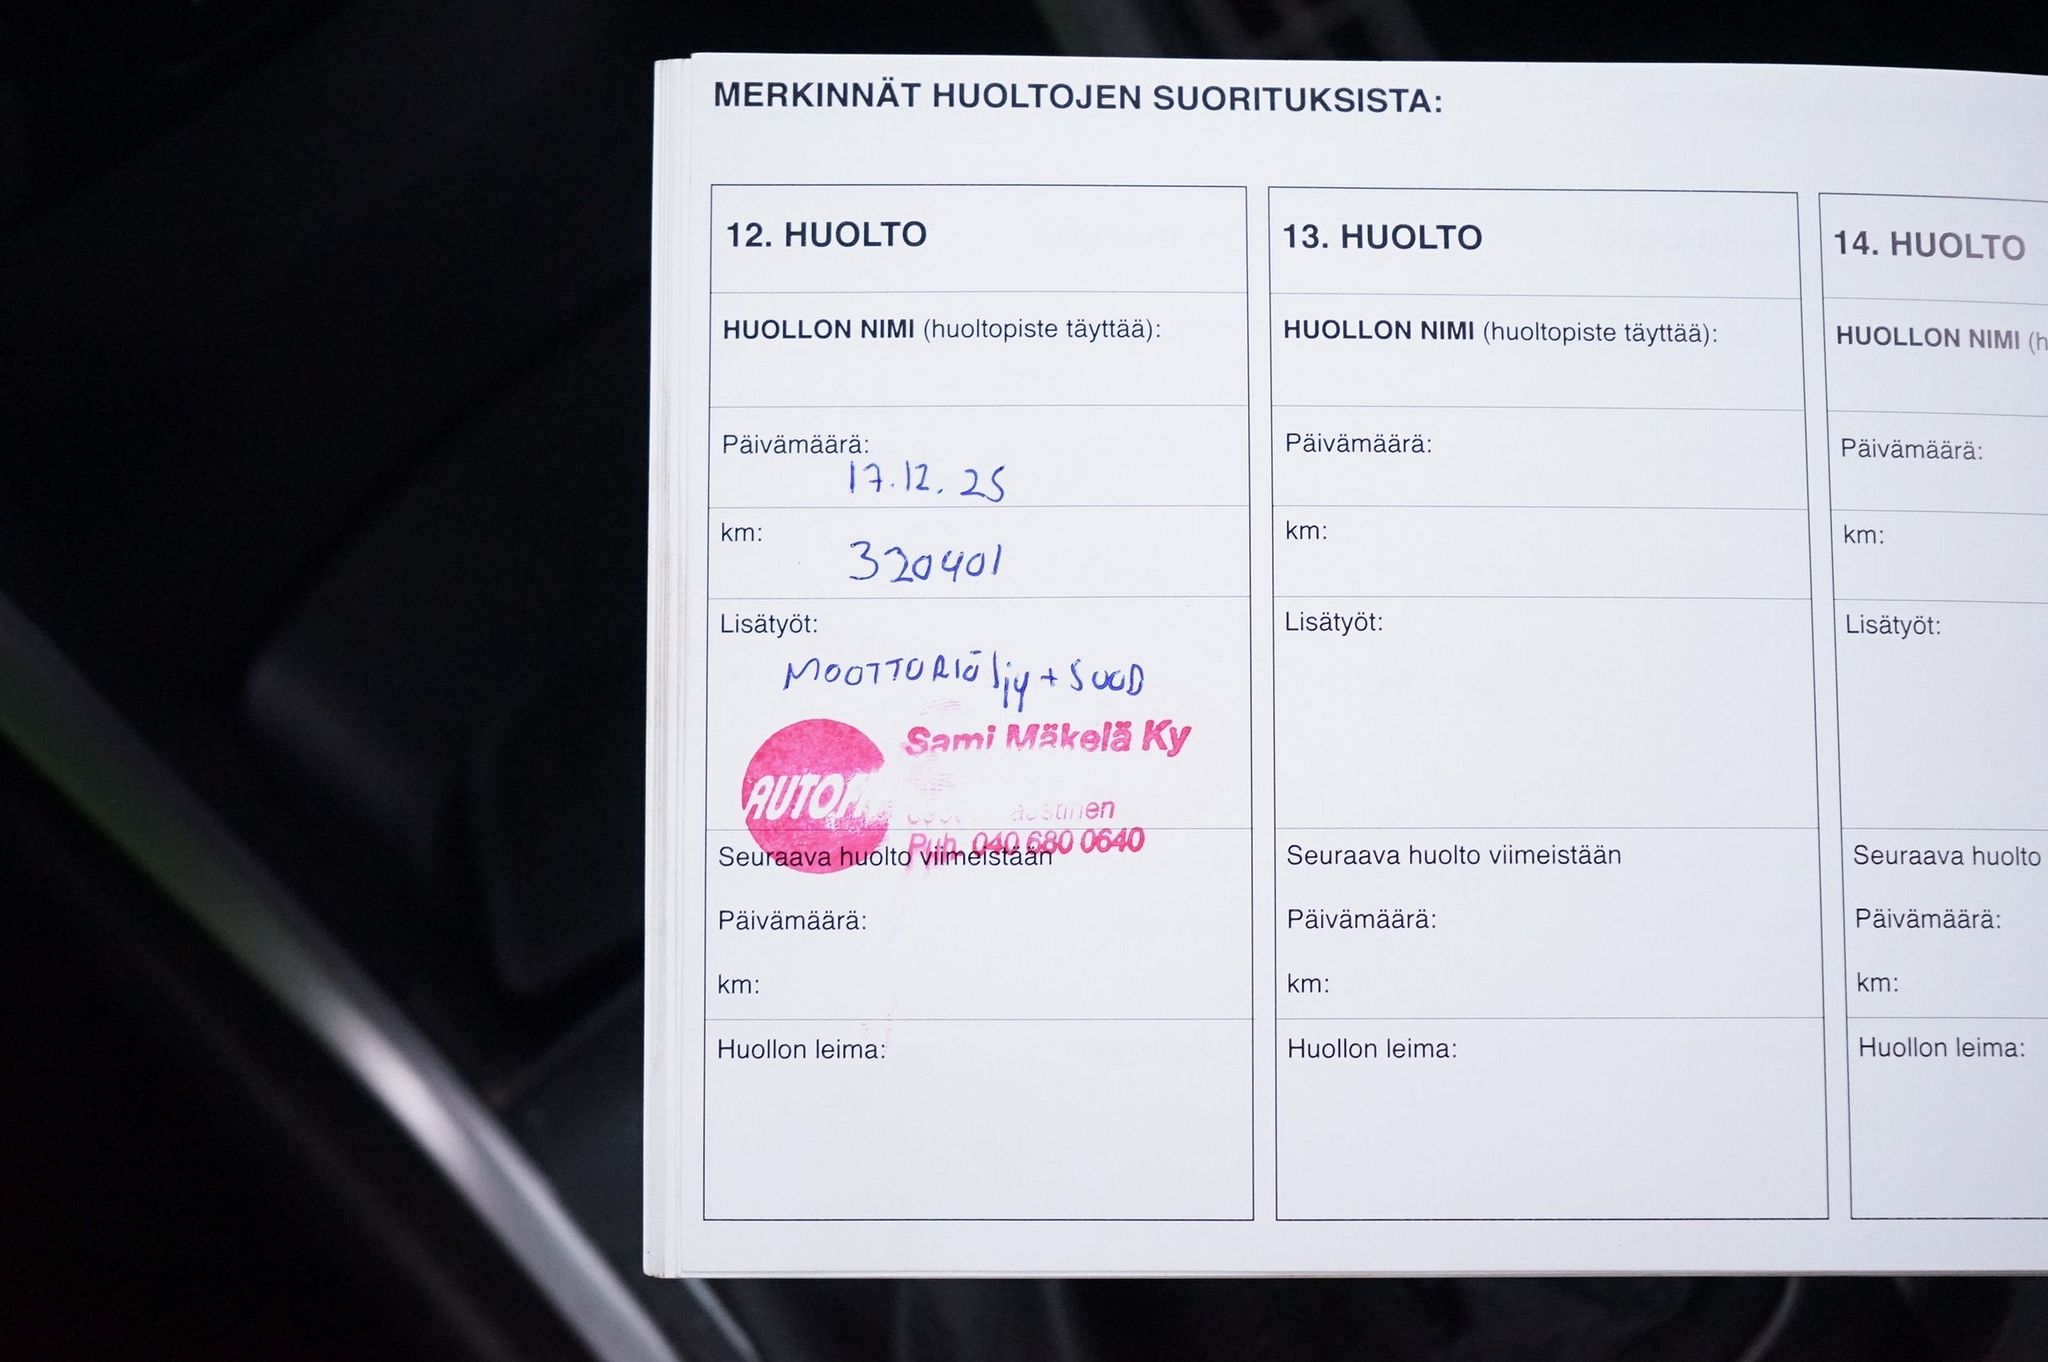 MERKINNÄT HUOLTOJEN SUORITUKSISTA:
12. HUOLTO
HUOLLON NIMI (huoltopiste täyttää):
Päivämäärä:
17.12.25
km:
320401
Lisätyöt:
MOOTTORIÖljy + SUOD
Sami Mäkelä Ky
Puh. 040 680 0640
Seuraava huolto viimeistään
Päivämäärä:
km:
Huollon leima:
13. HUOLTO
HUOLLON NIMI (huoltopiste täyttää):
Päivämäärä:
km:
Lisätyöt:
Seuraava huolto viimeistään
Päivämäärä:
km:
Huollon leima:
14. HUOLTO
HUOLLON NIMI (h
Päivämäärä:
km:
Lisätyöt:
Seuraava huolto
Päivämäärä:
km:
Huollon leima: